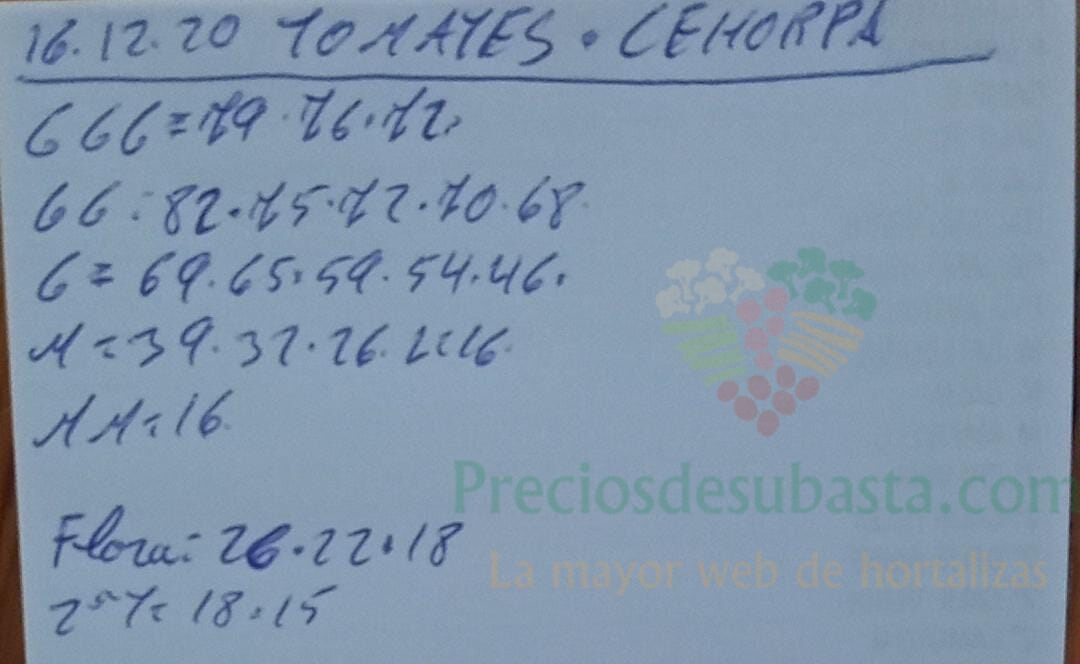 16.12.20 TOMATES • CEHORPA
GGG = 79 · 76 · 72.
GG : 82 · 75 · 72 · 70 · 68.
G = 69 · 65 · 59 · 54 · 46.
M = 39 · 32 · 26 ·
MM = 16.
Flora: 26 · 22 · 18
18 · 15
Preciosdesubasta.com
La mayor web de hortalizas